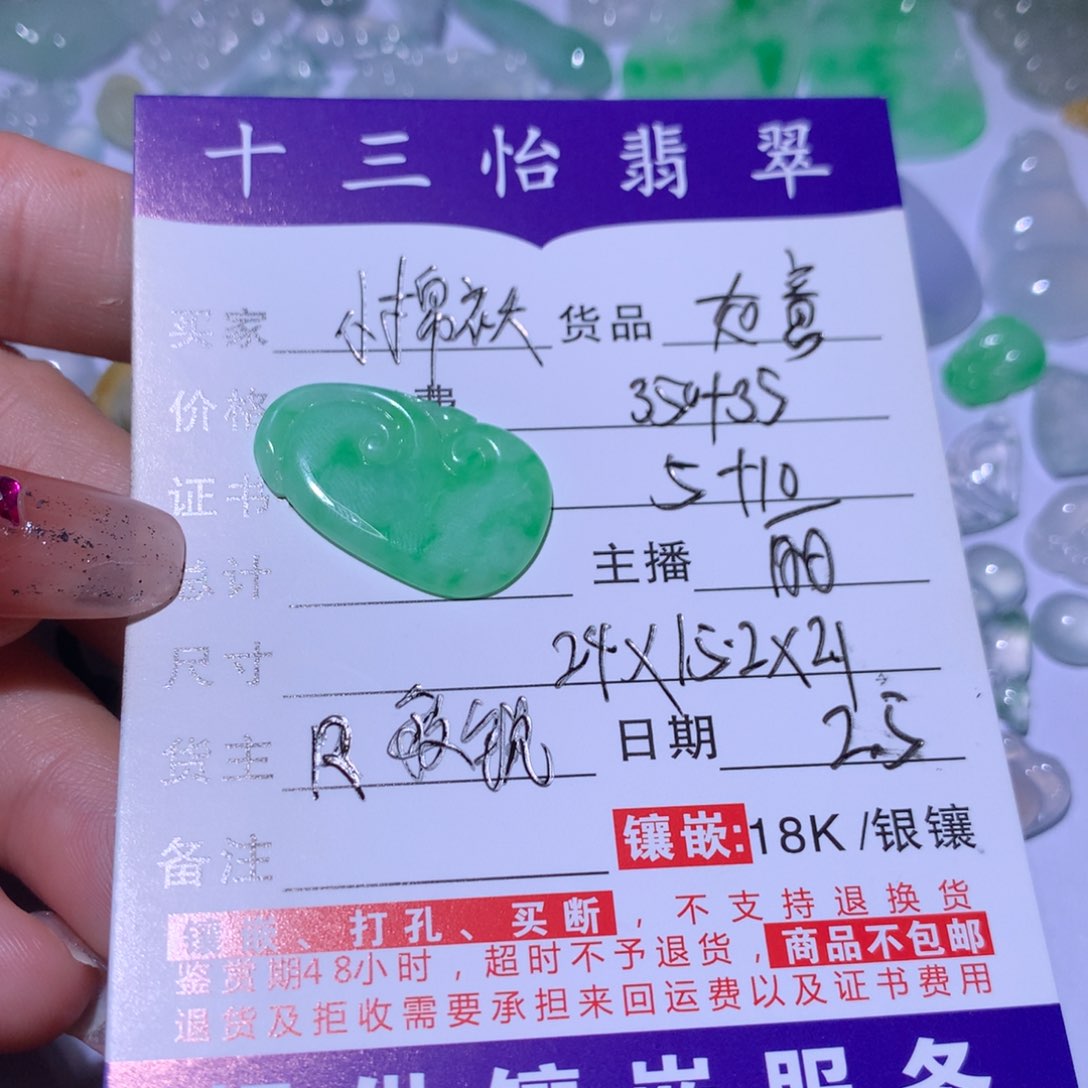 十三怡翡翠
买家 小棉袄 货品 如意
价格 费 350+35
证书 5+10
总计 主播
尺寸 24×15.2×2
货主 R 日期 2.5
备注 镶嵌:18K /银镶
镶嵌、打孔、买断,不支持退换货
鉴赏期48小时,超时不予退货,商品不包邮
退货及拒收需要承担来回运费以及证书费用
镶嵌服务